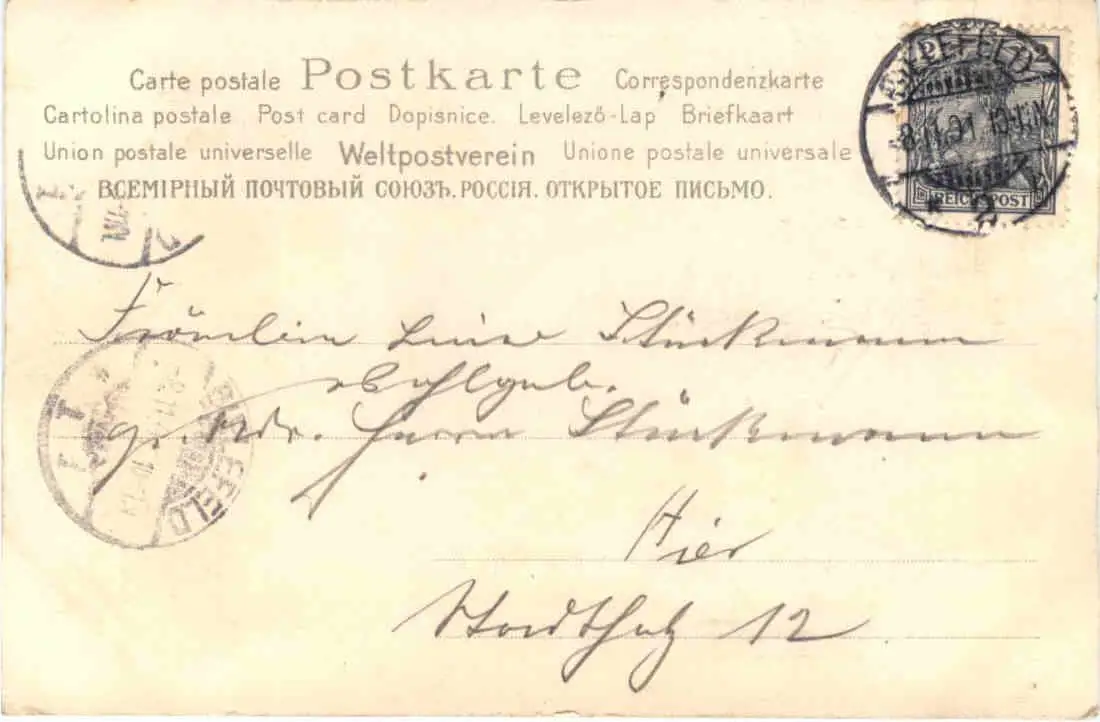 Carte postale Postkarte Correspondenzkarte
Cartolina postale Post card Dopisnice. Levelező-Lap Briefkaart
Union postale universelle Weltpostverein Unione postale universale
ВСЕМІРНЫЙ ПОЧТОВЫЙ СОЮЗЪ. РОССІЯ. ОТКРЫТОЕ ПИСЬМО.
BIELEFELD
REICHSPOST
2
Fräulein Luise Stückmann
Herrn Stückmann
BIELEFELD
Hier
12